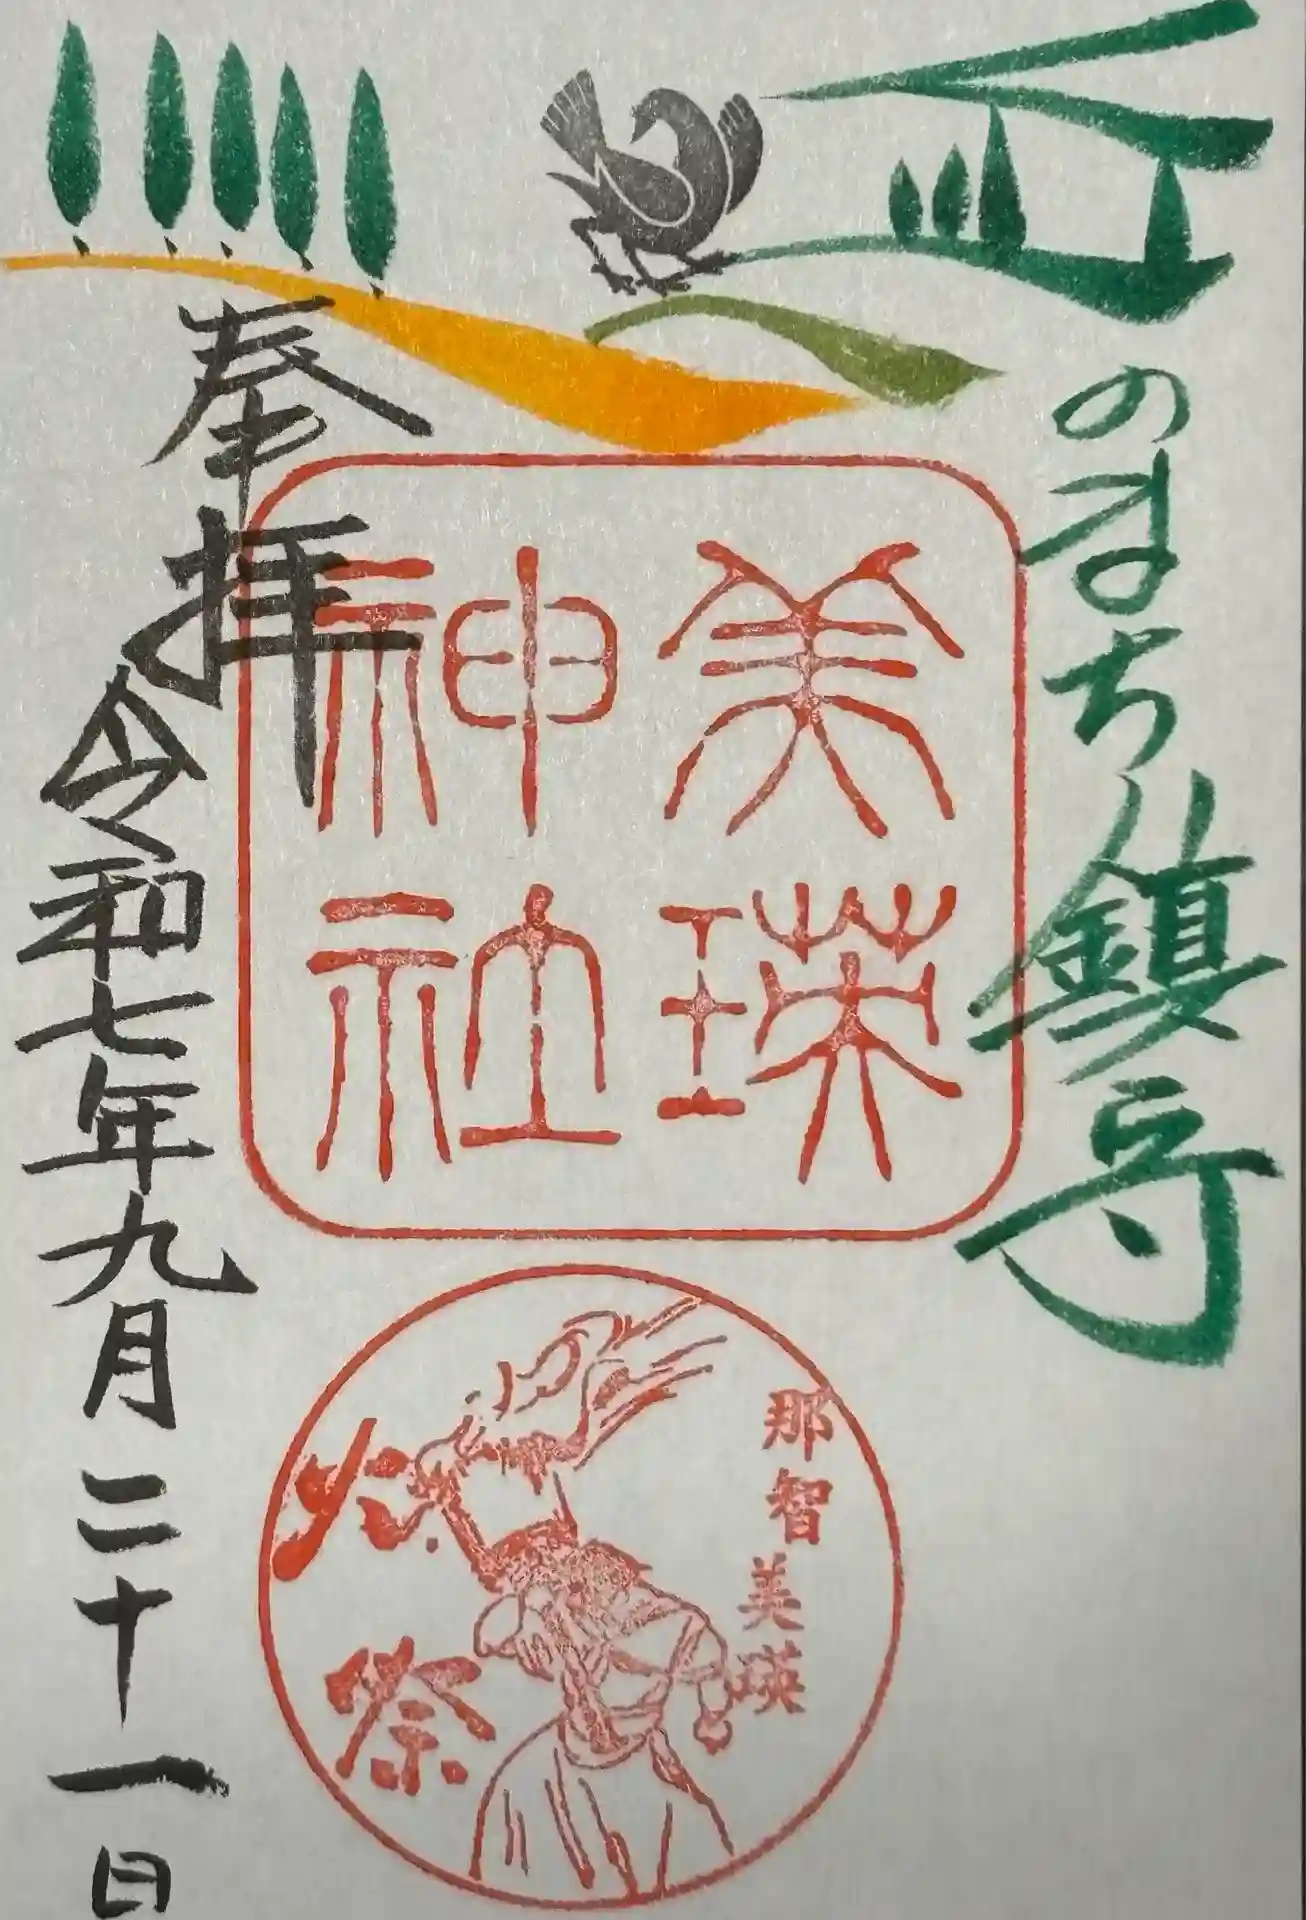 丘のまち鎮守
美瑛
神社
那智
美瑛
火祭
奉拝
令和七年九月二十一日